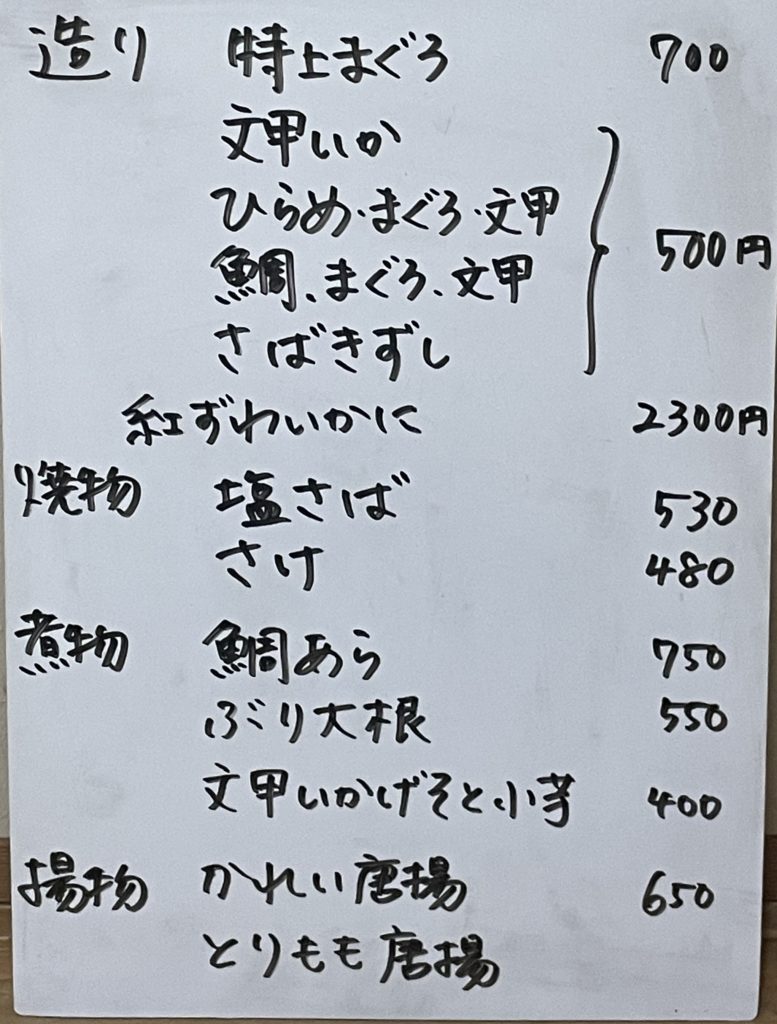 造り 特上まぐろ 700
文甲いか
ひらめ・まぐろ・文甲
鯛、まぐろ、文甲
さばきずし
500円
紅ずわいかに 2300円
焼物 塩さば 530
さけ 480
煮物 鯛あら 750
ぶり大根 550
文甲いかげそと小芋 400
揚物 かれい唐揚 650
とりもも唐揚